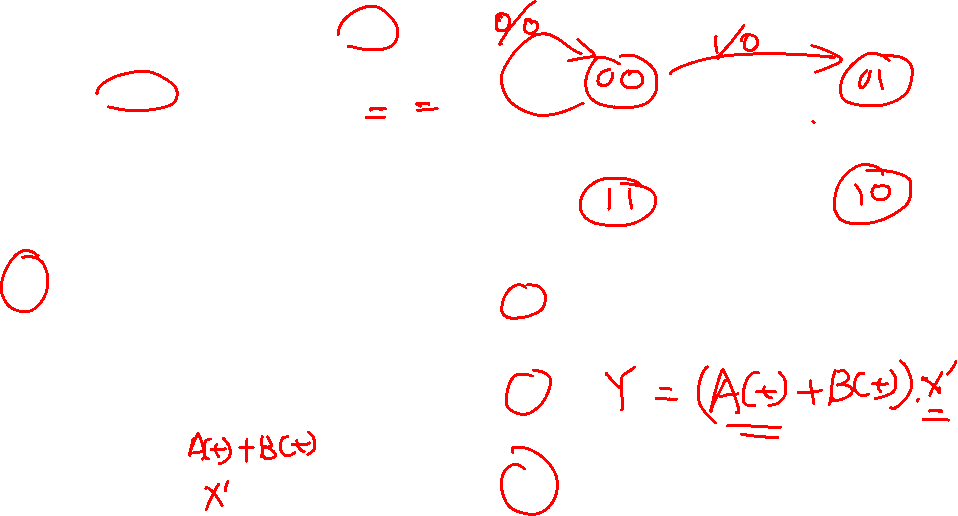 0/0
00
1/0
01
11
10
= =
Y = (A(t)+B(t)).x'
A(t)+B(t)
x'